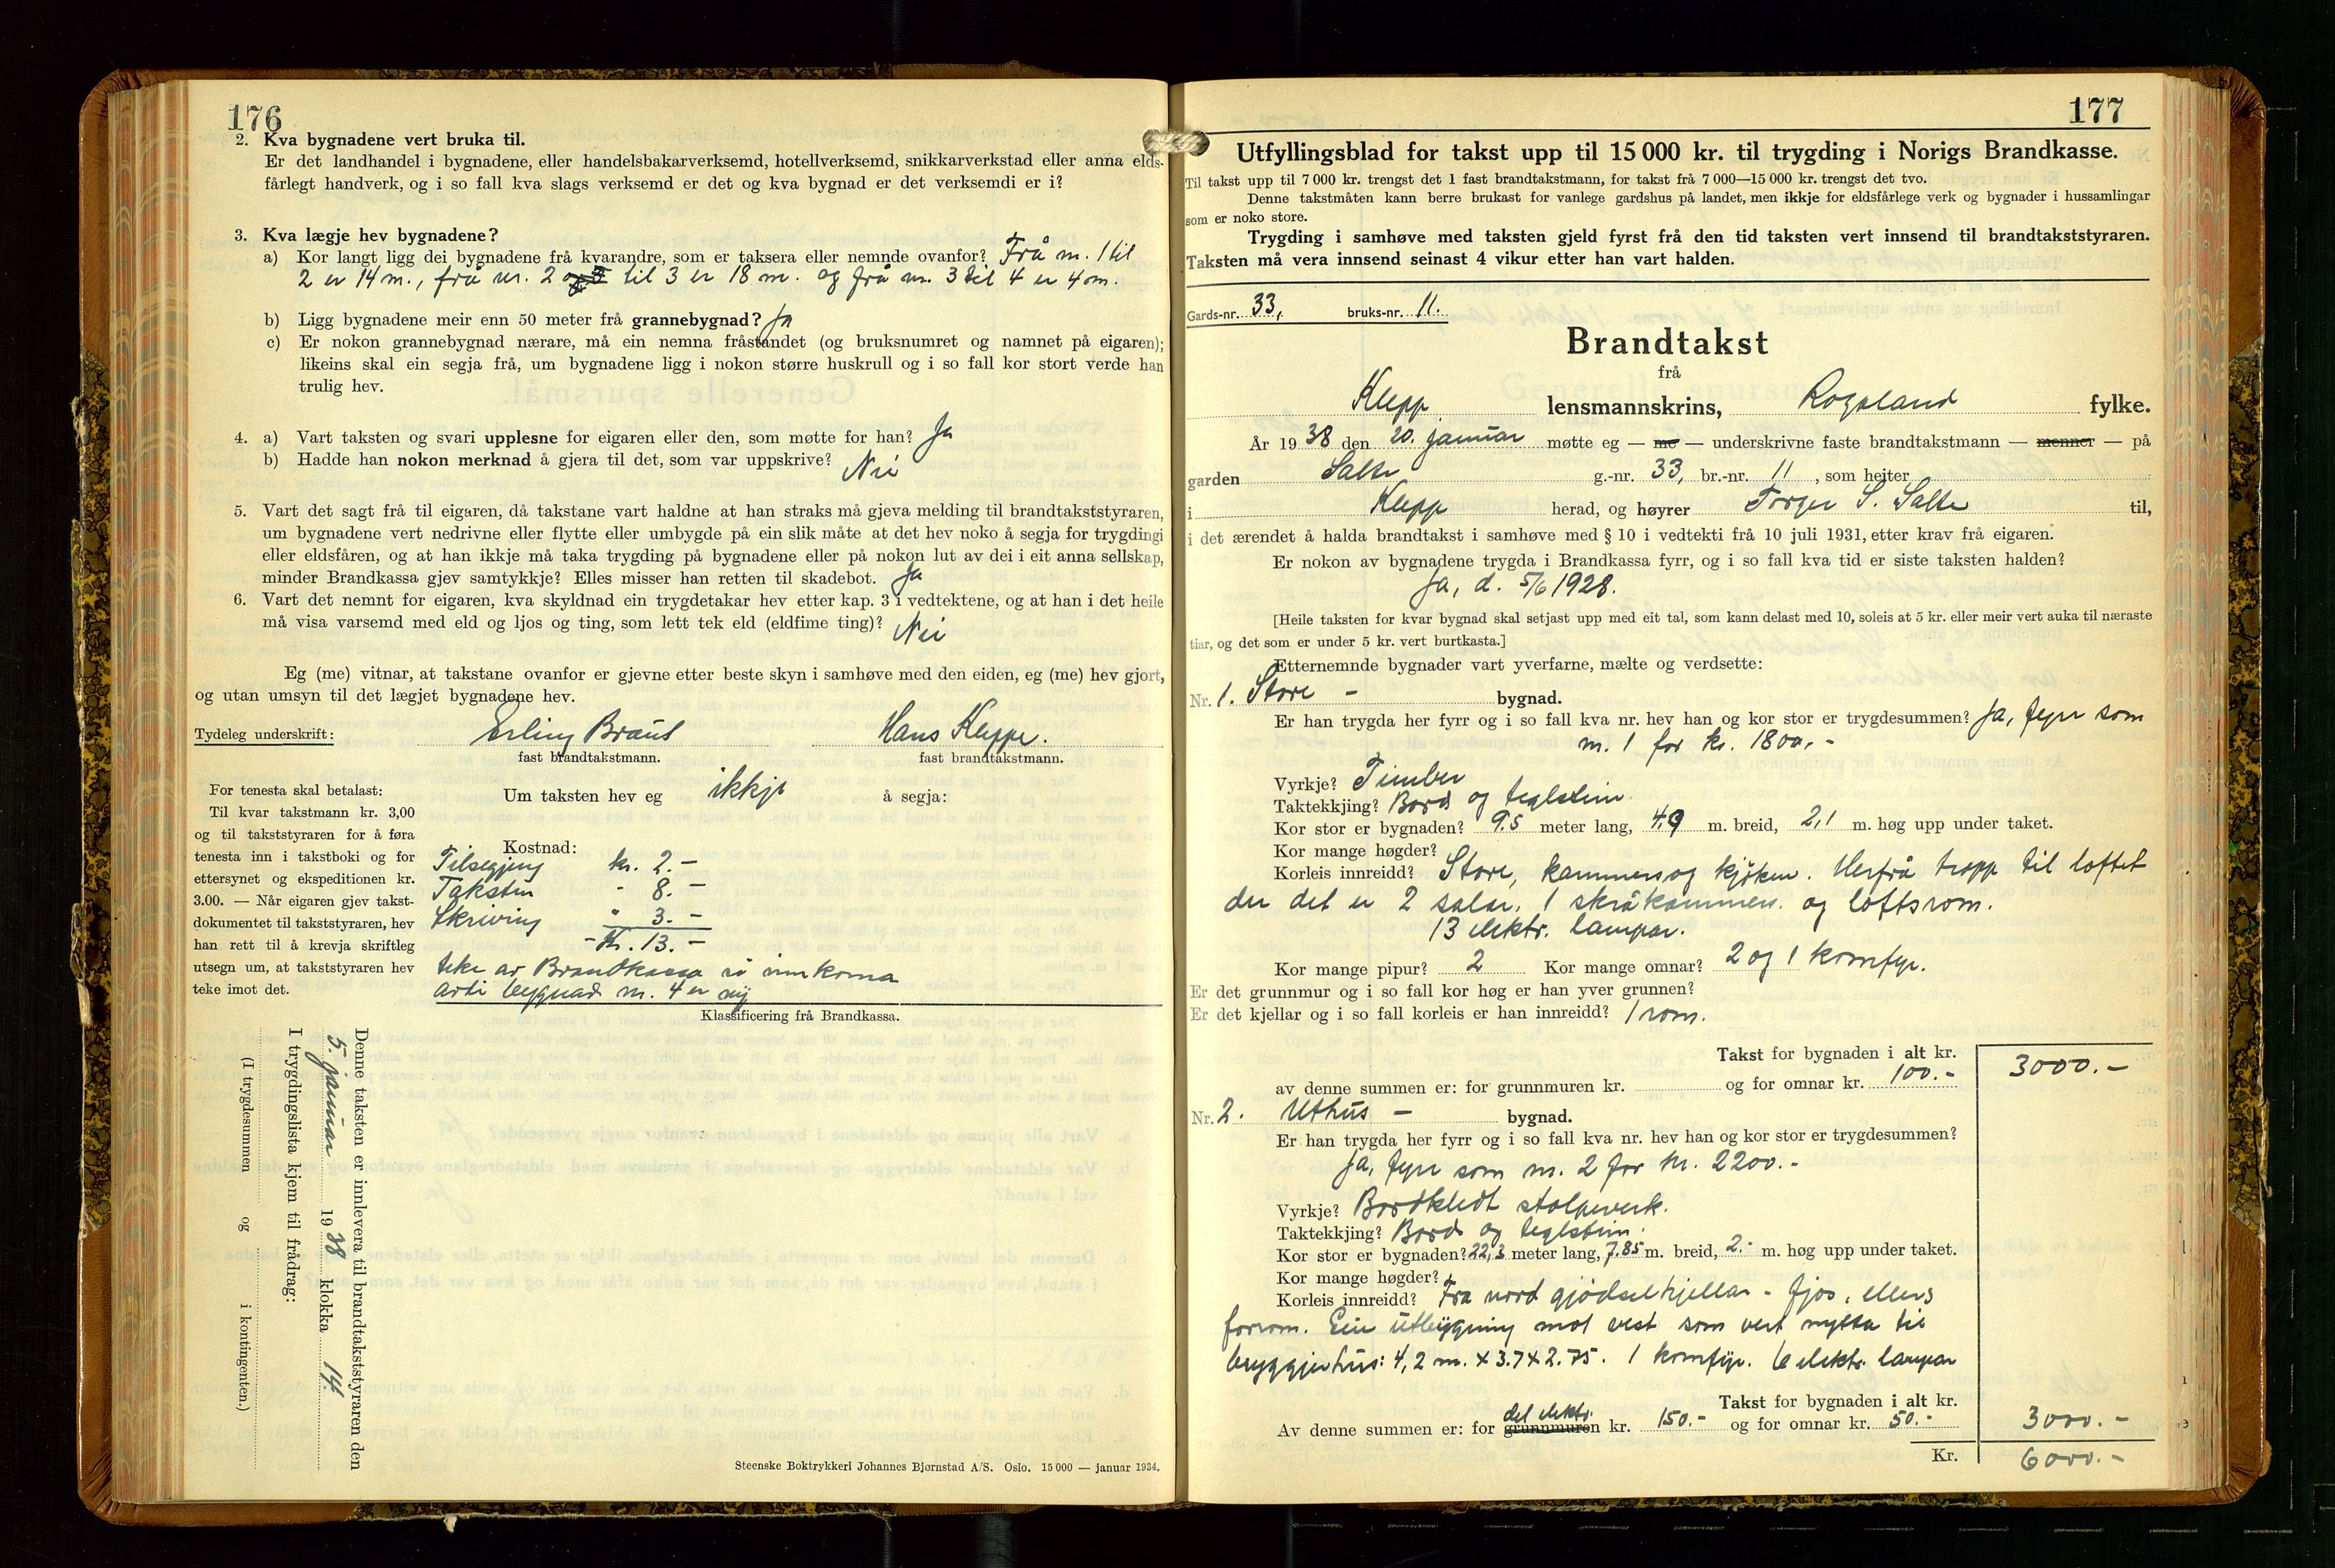 176
2. Kva bygnadene vert bruka til.
Er det landhandel i bygnadene, eller handelsbakarverksemd, hotellverksemd, snikkarverkstad eller anna elds-
fårlegt handverk, og i so fall kva slags verksemd er det og kva bygnad er det verksemdi er i?
3. Kva lægje hev bygnadene?
a) Kor langt ligg dei bygnadene frå kvarandre, som er taksera eller nemnde ovanfor? Frå nr. 1 til
2 er 14 m., frå nr. 2 til 3 er 18 m. og frå nr. 3 til 4 er 4 m.
b) Ligg bygnadene meir enn 50 meter frå grannebygnad? Ja
c) Er nokon grannebygnad nærare, må ein nemna fråstandet (og bruksnumret og namnet på eigaren);
likeins skal ein segja frå, um bygnadene ligg i nokon større huskrull og i so fall kor stort verde han
trulig hev.
4. a) Vart taksten og svari upplesne for eigaren eller den, som møtte for han? Ja
b) Hadde han nokon merknad å gjera til det, som var uppskrive? Nei
5. Vart det sagt frå til eigaren, då takstane vart haldne at han straks må gjeva melding til brandtakststyraren,
um bygnadene vert nedrivne eller flytte eller umbygde på ein slik måte at det hev noko å segja for trygdingi
eller eldsfåren, og at han ikkje må taka trygding på bygnadene eller på nokon lut av dei i eit anna sellskap,
minder Brandkassa gjev samtykkje? Elles misser han retten til skadebot. Ja
6. Vart det nemnt for eigaren, kva skyldnad ein trygdetakar hev etter kap. 3 i vedtektene, og at han i det heile
må visa varsemd med eld og ljos og ting, som lett tek eld (eldfime ting)? Nei
Eg (me) vitnar, at takstane ovanfor er gjevne etter beste skyn i samhøve med den eiden, eg (me) hev gjort,
og utan umsyn til det lægjet bygnadene hev.
Tydeleg underskrift: Erling Braut Hans Kleppe.
fast brandtakstmann. fast brandtakstmann.
For tenesta skal betalast:
Til kvar takstmann kr. 3,00
og til takststyraren for å føra
tenesta inn i takstboki og for
ettersynet og ekspeditionen kr.
3.00. — Når eigaren gjev takst-
dokumentet til takststyraren, hev
han rett til å krevja skriftleg
utsegn um, at takststyraren hev
teke imot det.
Um taksten hev eg ikkje å segja:
Kostnad:
Tilsegjing kr. 2.-
Taksten " 8.-
Skriving " 3.-
Kr. 13.-
teke av Brandkassa
bygnad nr. 4 er ny
Klassificering frå Brandkassa.
Denne taksten er innlevera til brandtakststyraren den
5. januar 1938 klokka 14.
I trygdingslista kjem til frådrag:
(I trygdesummen og i kontingenten.)
Steenske Boktrykkeri Johannes Bjørnstad A/S. Oslo. 15 000 — januar 1934.
177
Utfyllingsblad for takst upp til 15 000 kr. til trygding i Norigs Brandkasse.
Til takst upp til 7 000 kr. trengst det 1 fast brandtakstmann, for takst frå 7 000—15 000 kr. trengst det tvo.
Denne takstmåten kann berre brukast for vanlege gardshus på landet, men ikkje for eldsfårlege verk og bygnader i hussamlingar
som er noko store.
Trygding i samhøve med taksten gjeld fyrst frå den tid taksten vert innsend til brandtakststyraren.
Taksten må vera innsend seinast 4 vikur etter han vart halden.
Gards-nr. 33, bruks-nr. 11.
Brandtakst
frå
Klepp lensmannskrins, Rogaland fylke.
År 1938 den 20. januar møtte eg — me — underskrivne faste brandtakstmann — menner — på
garden Salte g.-nr. 33, br.-nr. 11, som heiter
i Klepp herad, og høyrer Torger S. Salte til,
i det ærendet å halda brandtakst i samhøve med § 10 i vedtekti frå 10 juli 1931, etter krav frå eigaren.
Er nokon av bygnadene trygda i Brandkassa fyrr, og i so fall kva tid er siste taksten halden?
Ja, d. 5/6 1928.
[Heile taksten for kvar bygnad skal setjast upp med eit tal, som kann delast med 10, soleis at 5 kr. eller meir vert auka til næraste
tiar, og det som er under 5 kr. vert burtkasta.]
Etternemnde bygnader vart yverfarne, mælte og verdsette:
Nr. 1. Stove - bygnad.
Er han trygda her fyrr og i so fall kva nr. hev han og kor stor er trygdesummen? Ja, fyrr som
nr. 1 for kr. 1800.-
Vyrkje? Timber
Taktekkjing? Bord og teglstein.
Kor stor er bygnaden? 9.5 meter lang, 4.9 m. breid, 2,1 m. høg upp under taket.
Kor mange høgder?
Korleis innreidd? Stove, kammers og kjøken. Herfrå tropp til loftet
der det er 2 salar, 1 skråkammers og loftsrom.
13 elektr. lampar.
Kor mange pipur? 2 Kor mange omnar? 2 og 1 komfyr.
Er det grunnmur og i so fall kor høg er han yver grunnen?
Er det kjellar og i so fall korleis er han innreidd? 1 rom.
Takst for bygnaden i alt kr. 3000.-
av denne summen er: for grunnmuren kr. og for omnar kr. 100.-
Nr. 2. Uthus - bygnad.
Er han trygda her fyrr og i so fall kva nr. hev han og kor stor er trygdesummen?
Ja, fyrr som nr. 2 for kr. 2200.-
Vyrkje? Bordkledt stolpeverk.
Taktekkjing? Bord og teglstein.
Kor stor er bygnaden? 22,3 meter lang, 7.85 m. breid, 2.- m. høg upp under taket.
Kor mange høgder?
Korleis innreidd? Fra nord gjødselkjellar - fjos, ellers
forrom. Ein utbygning mot vest som vert nytta til
bryggjerhus: 4,2 m. x 3.7 x 2.75. 1 komfyr. 6 elektr. lampar
Takst for bygnaden i alt kr. 3000.-
Av denne summen er: for grunnmuren det elektr. kr. 150.- og for omnar kr. 50.-
Kr. 6000.-